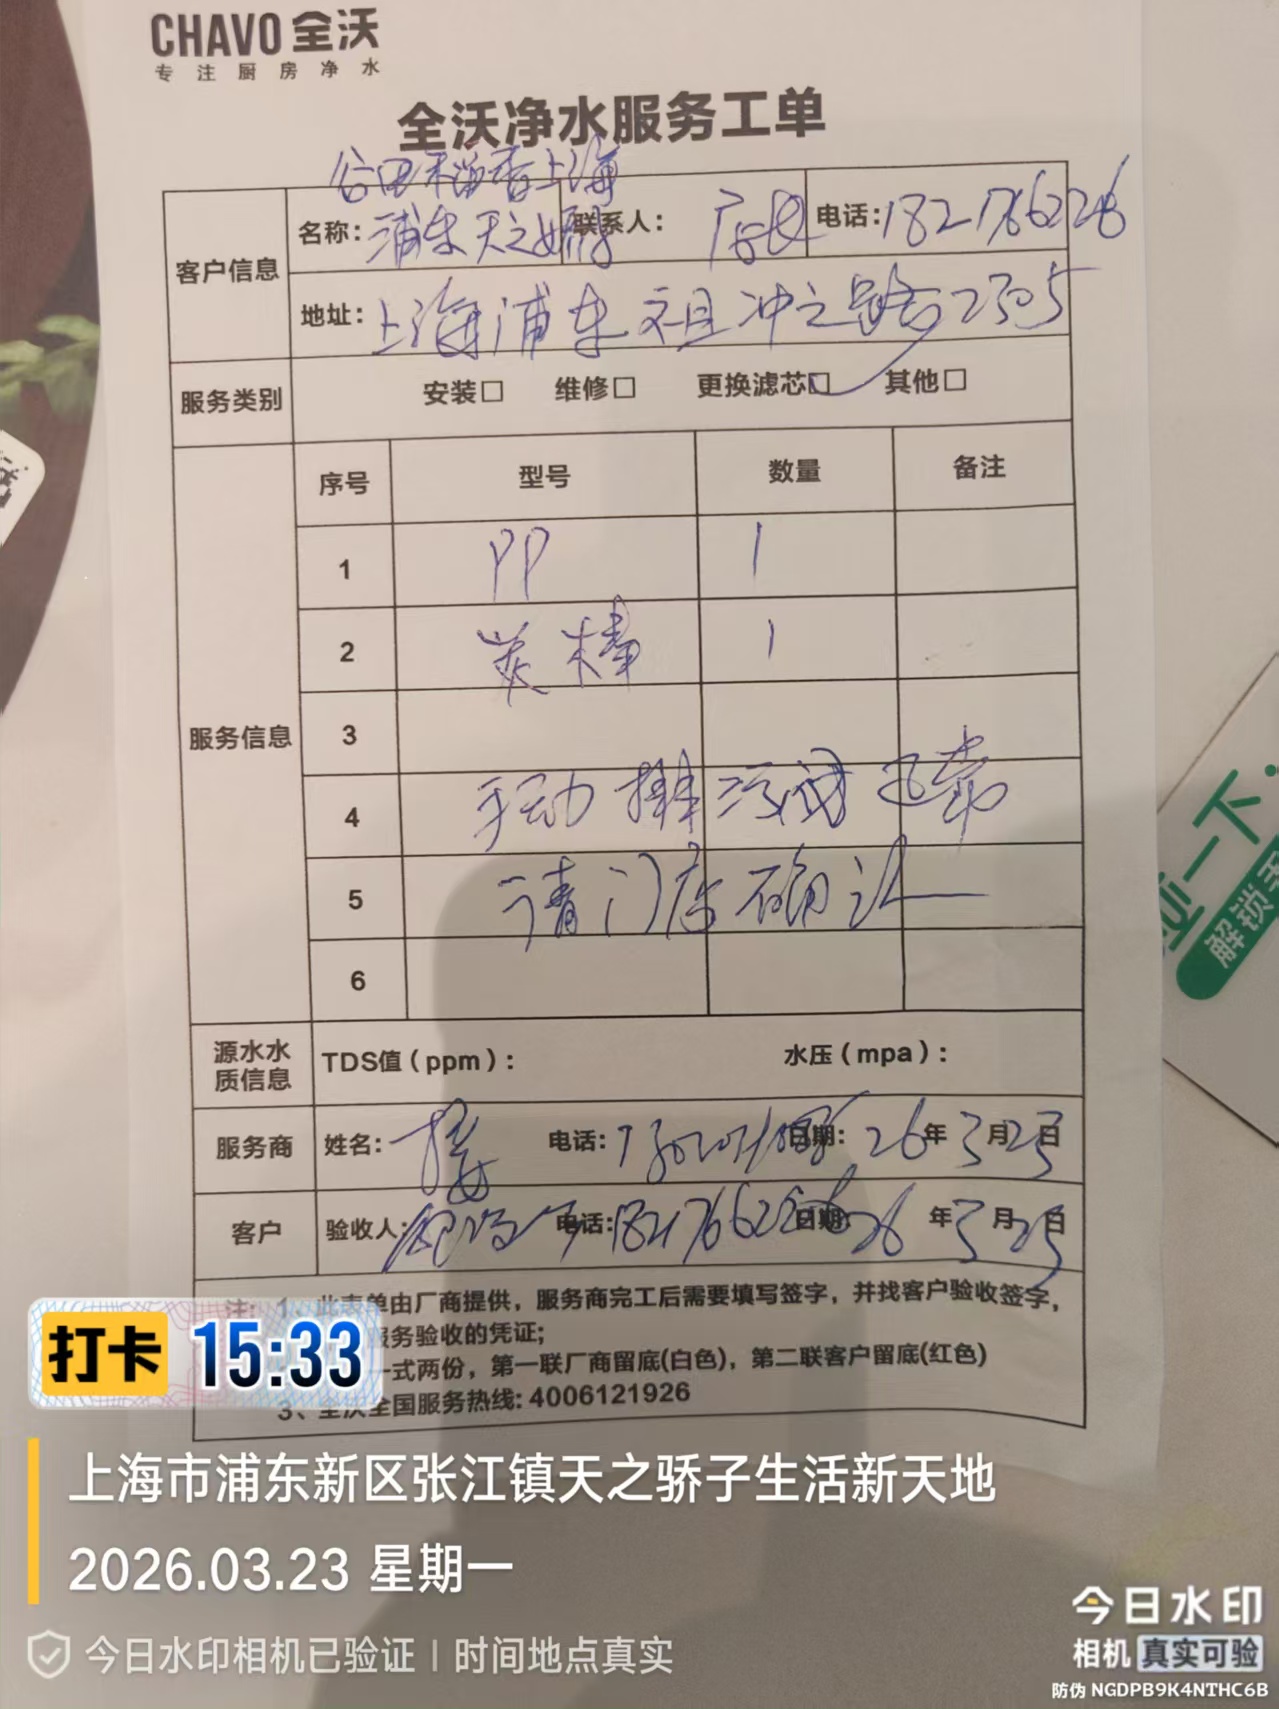 CHAVO 全沃
专注厨房净水
全沃净水服务工单
谷田稻香上海
客户信息 名称: 浦东天之娇 联系人: 店长 电话: 1821766226
地址: 上海浦东祖冲之路2305
服务类别 安装□ 维修□ 更换滤芯□ 其他□
服务信息 序号 型号 数量 备注
1 PP 1
2 炭棒 1
3
4 手动排污阀已装
5 请门店确认
6
源水水质信息 TDS值(ppm): 水压(mpa):
服务商 姓名: 电话: 日期: 26年3月23日
客户 验收人: 电话: 日期: 26年3月23日
注: 1、此表单由厂商提供,服务商完工后需要填写签字,并找客户验收签字,
服务验收的凭证;
一式两份,第一联厂商留底(白色),第二联客户留底(红色)
3、全沃全国服务热线: 4006121926
一下
解锁
打卡 15:33
上海市浦东新区张江镇天之骄子生活新天地
2026.03.23 星期一
今日水印相机已验证 | 时间地点真实
今日水印
相机 真实可验
防伪 NGDPB9K4NTHC6B